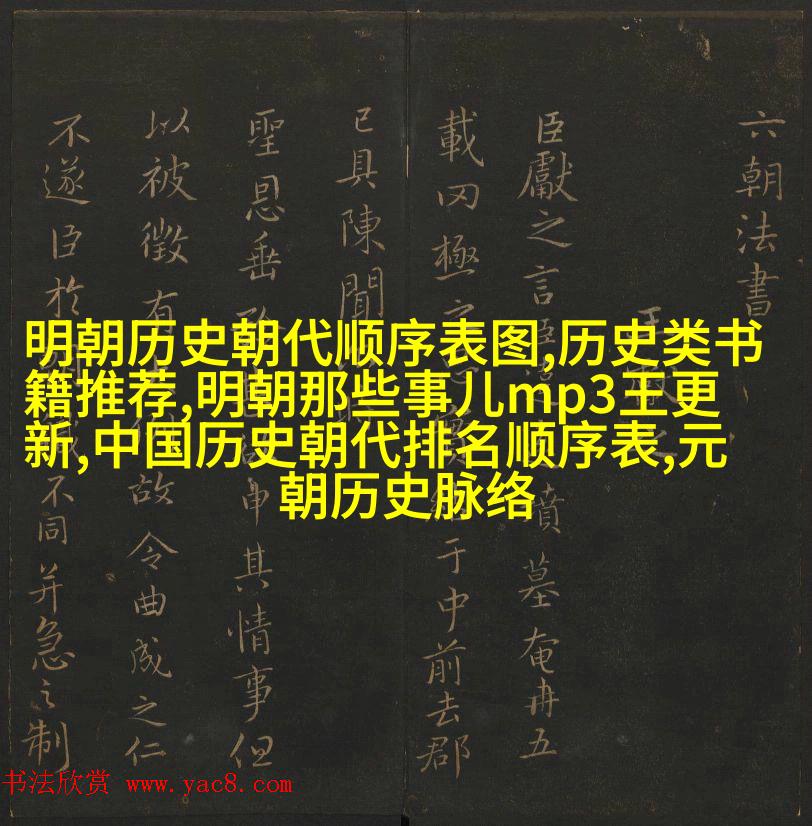 六朝法書
王
臣獻之言臣墳墓奄冉五
載罔極之于中前去郡
已具陳聞
聖恩垂申其情事但
以被徵有故令曲成之仁
不遂臣於不同并急之制
明朝历史朝代顺序表图,历史类书
籍推荐,明朝那些事儿mp3王更
新,中国历史朝代排名顺序表,元
朝历史脉络
书法欣赏 www.yac8.com